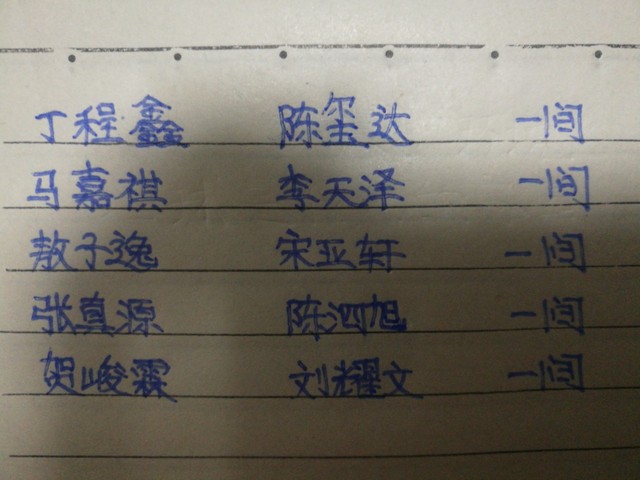 丁程鑫 陈玺达 一间
马嘉祺 李天泽 一间
敖子逸 宋亚轩 一间
张真源 陈泗旭 一间
贺峻霖 刘耀文 一间